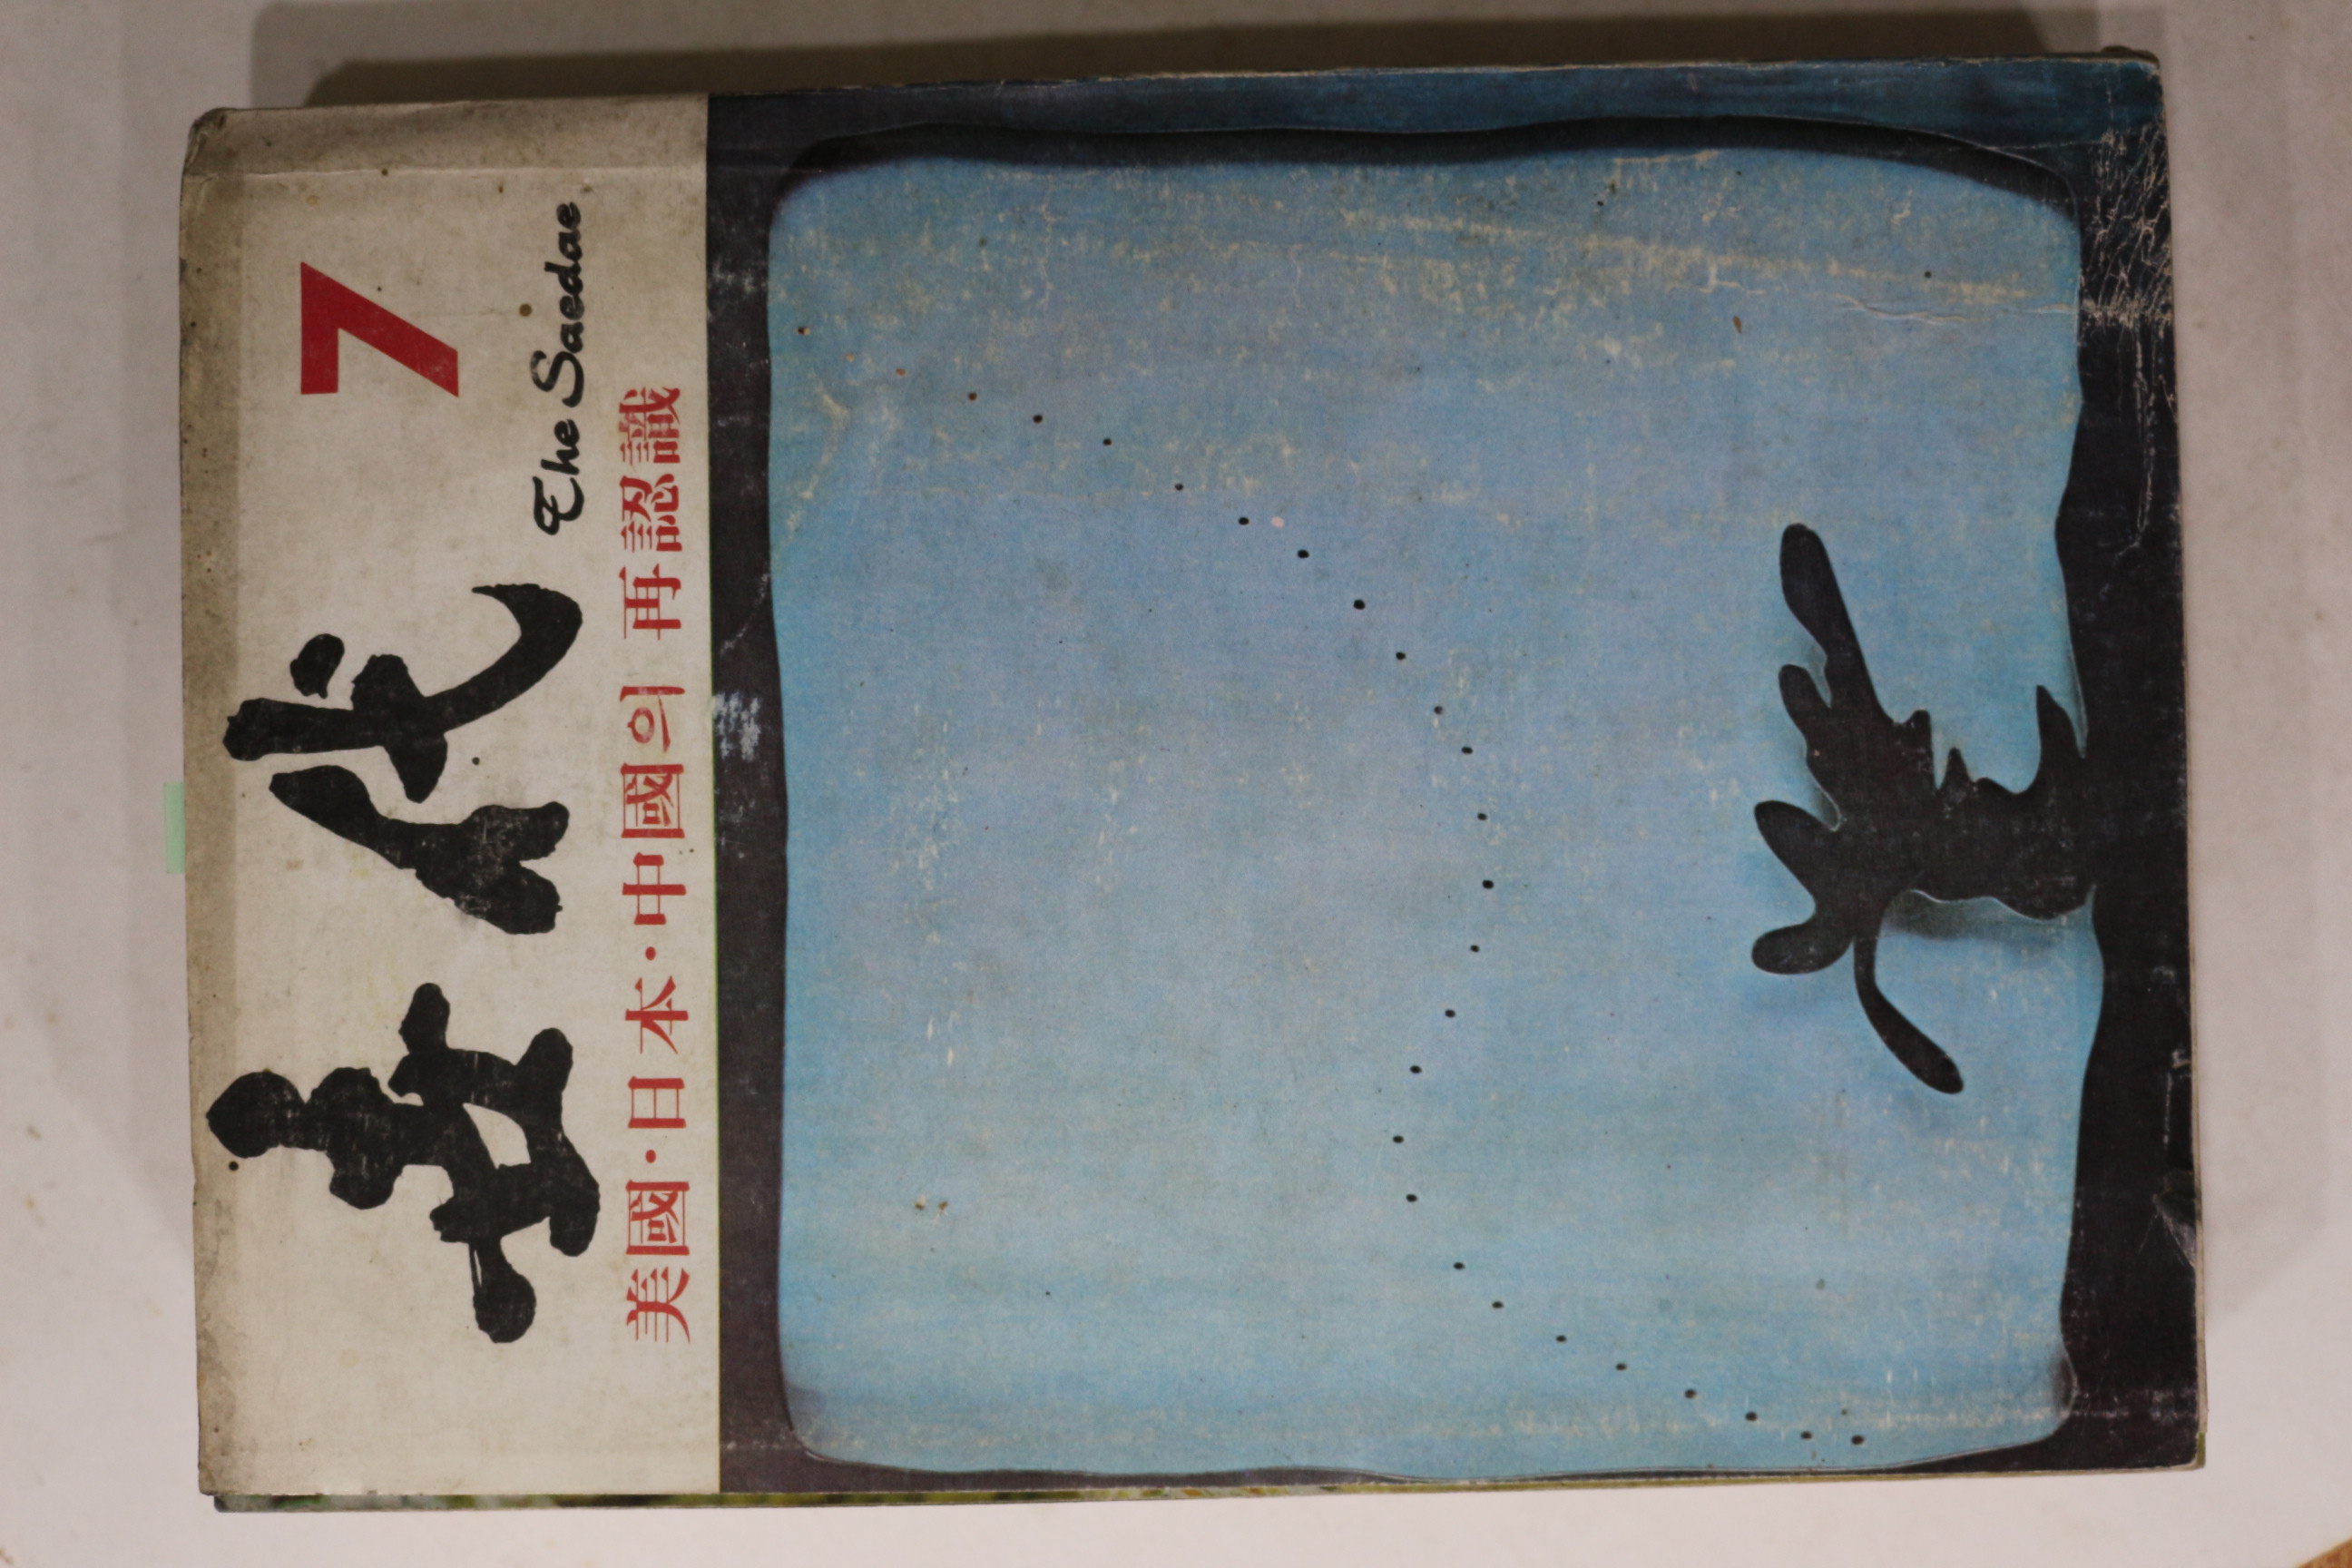 世代 7
The Saedae
美國·日本·中國의 再認識